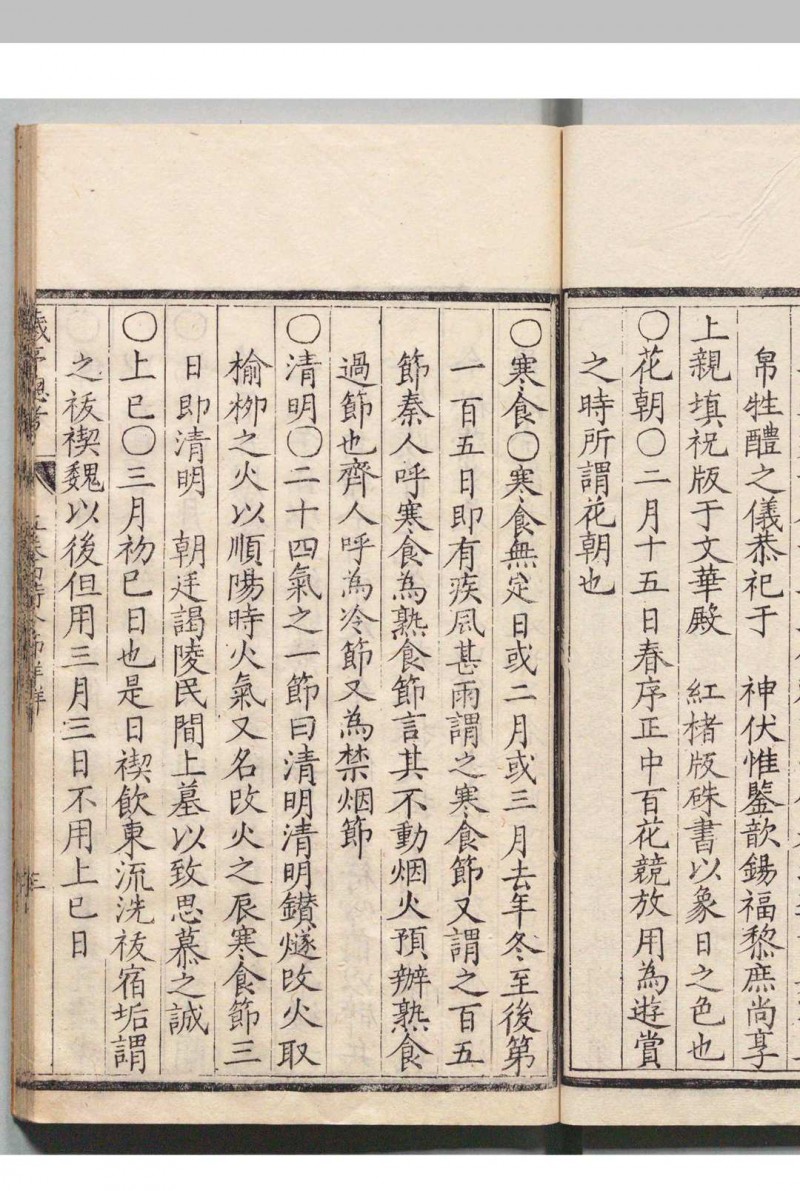 帛牲醴之儀恭祀于　神伏惟鑒歆錫福黎庶尚享
上親填祝版于文華殿　紅楮版硃書以象日之色也
〇花朝〇二月十五日春序正中百花競放用為遊賞
之時所謂花朝也
〇寒食〇寒食無定日或二月或三月去年冬至後第
一百五日即有疾風甚雨謂之寒食節又謂之百五
節秦人呼寒食為熟食節言其不動烟火預辦熟食
過節也齊人呼為冷節又為禁烟節
〇清明〇二十四氣之一節曰清明清明鑚燧改火取
榆栁之火以順陽時火氣又名改火之辰寒食節三
日即清明　朝廷謁陵民間上墓以致思慕之誠
〇上巳〇三月初巳日也是日禊飲東流洗祓宿垢謂
之祓禊魏以後但用三月三日不用上巳日